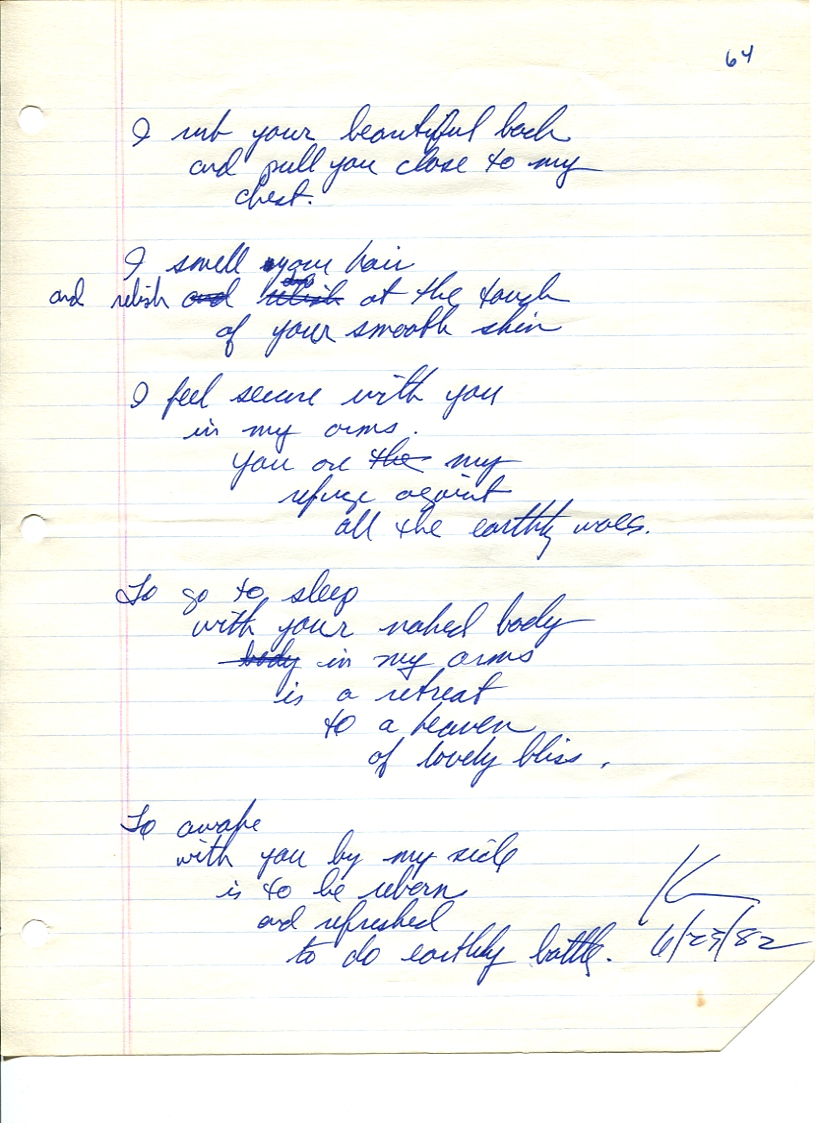 64
I rub your beautiful back
and pull you close to my
chest.
I smell your hair
and relish and relish at the touch
of your smooth skin
I feel secure with you
in my arms.
you are the my
refuge against
all the earthly woes.
To go to sleep
with your naked body
body in my arms
is a retreat
to a heaven
of lovely bliss.
To awake
with you by my side
is to be reborn
and refreshed
to do earthly battle.
K
6/23/82